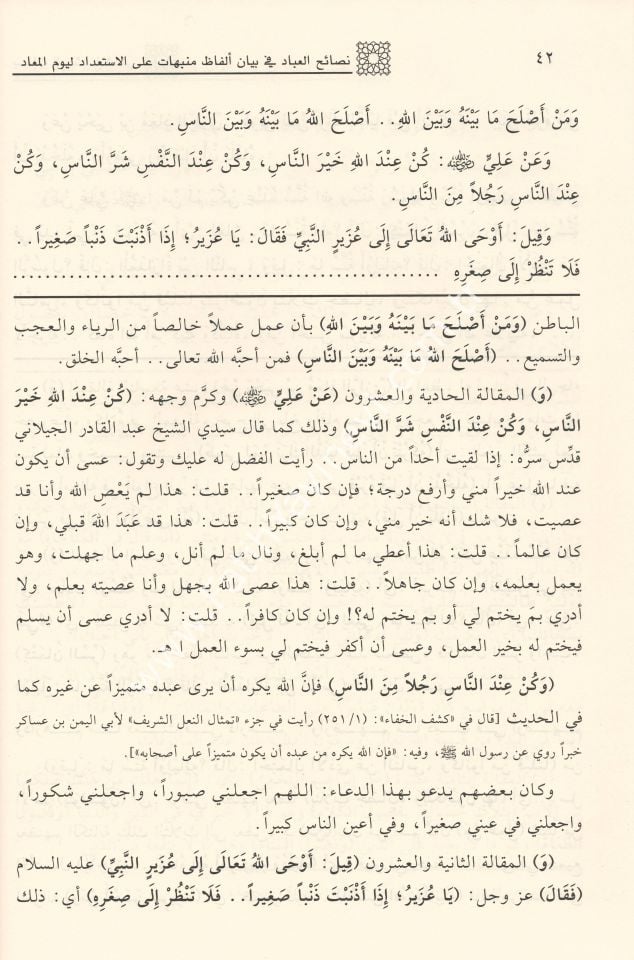 ٤٢
نصائح العباد في بيان ألفاظ منبهات على الاستعداد ليوم المعاد
وَمَنْ أَصْلَحَ مَا بَيْنَهُ وَبَيْنَ اللهِ.. أَصْلَحَ اللهُ مَا بَيْنَهُ وَبَيْنَ النَّاسِ.
وَعَنْ عَلِيٍّ رضي الله عنه: كُنْ عِنْدَ اللهِ خَيْرَ النَّاسِ، وَكُنْ عِنْدَ النَّفْسِ شَرَّ النَّاسِ، وَكُنْ
عِنْدَ النَّاسِ رَجُلاً مِنَ النَّاسِ.
وَقِيلَ: أَوْحَى اللهُ تَعَالَى إِلَى عُزَيرٍ النَّبِيِّ فَقَالَ: يَا عُزَيرُ؛ إِذَا أَذْنَبْتَ ذَنْباً صَغِيراً..
فَلَا تَنْظُرْ إِلَى صِغَرِهِ ..................................................
الباطن (وَمَنْ أَصْلَحَ مَا بَيْنَهُ وَبَيْنَ اللهِ) بأن عمل عملاً خالصاً من الرياء والعجب
والتسميع.. (أَصْلَحَ اللهُ مَا بَيْنَهُ وَبَيْنَ النَّاسِ) فمن أحبَّه الله تعالى.. أحبَّه الخلق.
(وَ) المقالة الحادية والعشرون (عَنْ عَلِيٍّ رضي الله عنه) وكرَّم وجهه: (كُنْ عِنْدَ اللهِ خَيْرَ
النَّاسِ، وَكُنْ عِنْدَ النَّفْسِ شَرَّ النَّاسِ) وذلك كما قال سيدي الشيخ عبد القادر الجيلاني
قدِّس سرُّه: إذا لقيت أحداً من الناس.. رأيت الفضل له عليك وتقول: عسى أن يكون
عند الله خيراً مني وأرفع درجة؛ فإن كان صغيراً.. قلت: هذا لم يَعْصِ الله وأنا قد
عصيت، فلا شك أنه خير مني، وإن كان كبيراً.. قلت: هذا قد عَبَدَ اللهَ قبلي، وإن
كان عالماً.. قلت: هذا أعطي ما لم أبلغ، ونال ما لم أنل، وعلم ما جهلت، وهو
يعمل بعلمه، وإن كان جاهلاً.. قلت: هذا عصى الله بجهل وأنا عصيته بعلم، ولا
أدري بمَ يختم لي أو بم يختم له؟! وإن كان كافراً.. قلت: لا أدري عسى أن يسلم
فيختم له بخير العمل، وعسى أن أكفر فيختم لي بسوء العمل اهـ.
(وَكُنْ عِنْدَ النَّاسِ رَجُلاً مِنَ النَّاسِ) فإنَّ الله يكره أن يرى عبده متميزاً عن غيره كما
في الحديث [قال في «كشف الخفاء»: (١/ ٢٥١) رأيت في جزء «تمثال النعل الشريف» لأبي اليمن بن عساكر
خبراً روي عن رسول الله ﷺ، وفيه: «فإن الله يكره من عبده أن يكون متميزاً على أصحابه»].
وكان بعضهم يدعو بهذا الدعاء: اللهم اجعلني صبوراً، واجعلني شكوراً،
واجعلني في عيني صغيراً، وفي أعين الناس كبيراً.
(وَ) المقالة الثانية والعشرون (قِيلَ: أَوْحَى اللهُ تَعَالَى إِلَى عُزَيرٍ النَّبِيِّ) عليه السلام
(فَقَالَ) عز وجل: (يَا عُزَيرُ؛ إِذَا أَذْنَبْتَ ذَنْباً صَغِيراً.. فَلَا تَنْظُرْ إِلَى صِغَرِهِ) أي: ذلك